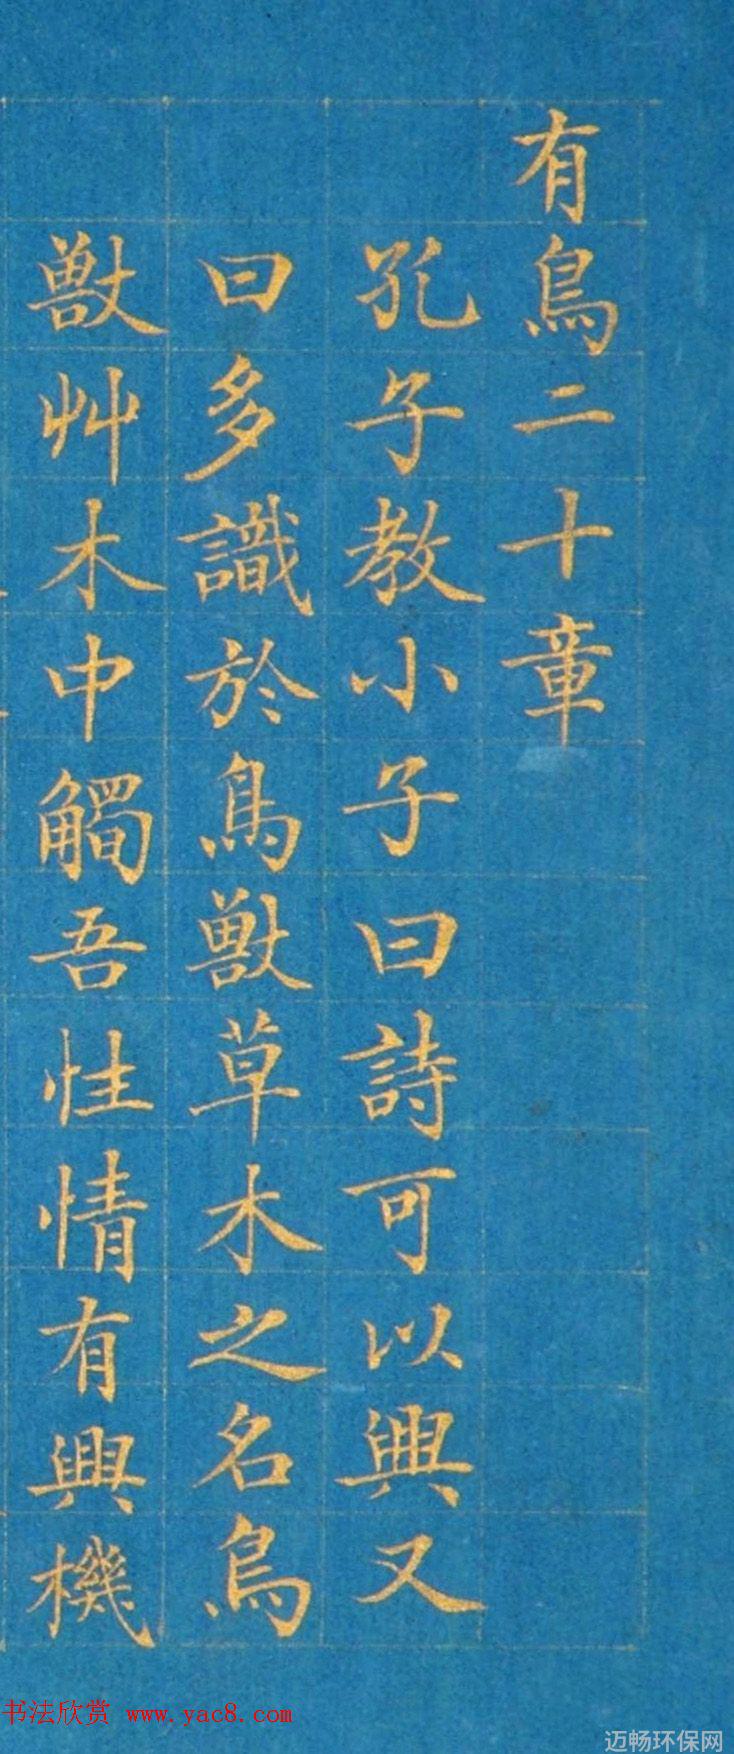 有鳥二十章
孔子教小子曰詩可以興又
曰多識於鳥獸草木之名鳥
獸艸木中觸吾性情有興機
书法欣赏 www.yac8.com
迈畅环保网